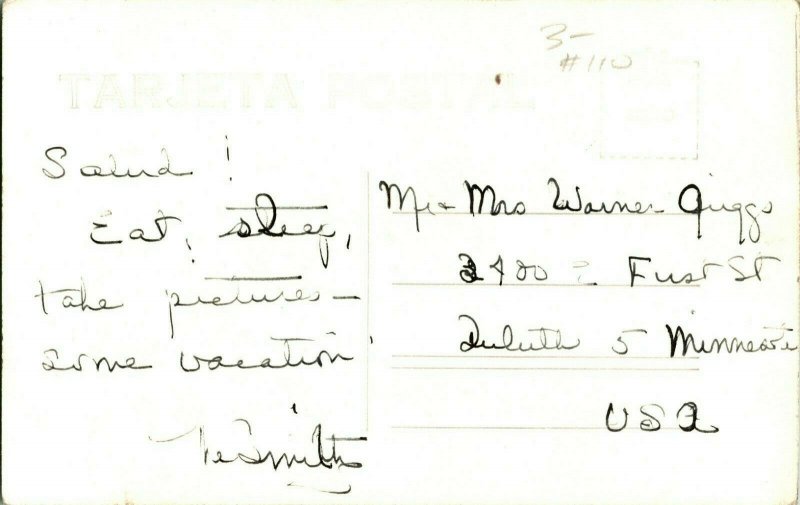 3-
#110
TARJETA POSTAL
Salud!
Eat, sleep,
take pictures -
some vacation!
The Smiths
Mr + Mrs Warner Griggs
2400 E First St
Duluth 5 Minnesota
USA